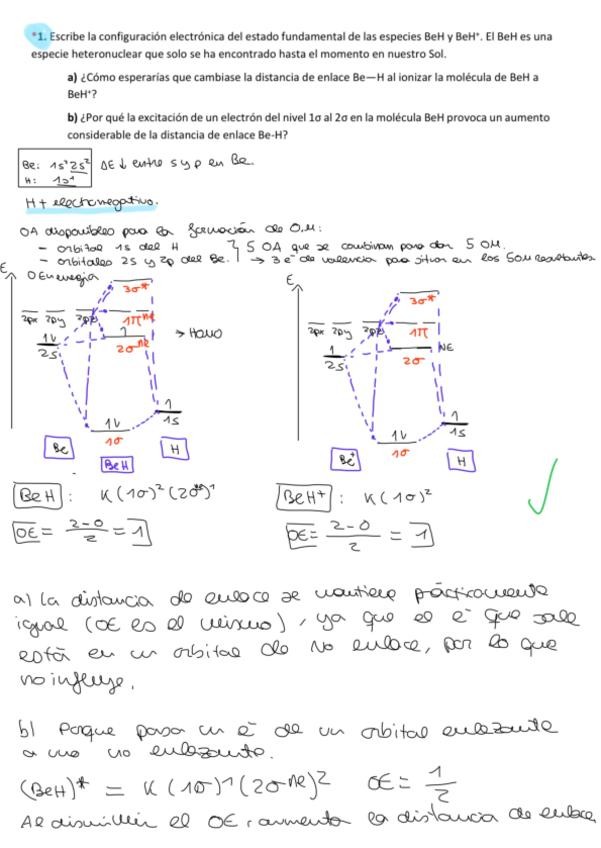 *1. Escribe la configuración electrónica del estado fundamental de las especies BeH y BeH⁺. El BeH es una
especie heteronuclear que solo se ha encontrado hasta el momento en nuestro Sol.
a) ¿Cómo esperarías que cambiase la distancia de enlace Be—H al ionizar la molécula de BeH a
BeH⁺?
b) ¿Por qué la excitación de un electrón del nivel 1σ al 2σ en la molécula BeH provoca un aumento
considerable de la distancia de enlace Be-H?
Be: 1s² 2s² ΔE ↓ entre s y p en Be.
H: 1s¹
H + electronegativo.
OA disponibles para la formación de O.M:
- orbital 1s del H } 5 OA que se combinan para dar 5 OM.
- orbitales 2s y 2p del Be. → 3 e⁻ de valencia para situar en los 5 OM resultantes.
E
E
3σ*
3σ*
2px 2py 2pz 1π
2px 2py 2pz 1π
2s 2σ → HOMO
2s 2σ NE
1s
1s
1σ
1σ
Be BeH H
Be⁺ H
BeH : K(1σ)² (2σ)¹
BeH⁺ : K(1σ)²
OE = 2-0 / 2 = 1
OE = 2-0 / 2 = 1
a) La distancia de enlace se mantiene prácticamente
igual (OE es el mismo), ya que el e⁻ que sale
está en un orbital de no enlace, por lo que
no influye.
b) Porque pasa un e⁻ de un orbital enlazante
a uno no enlazante.
(BeH)* = K(1σ)¹ (2σⁿᵉ)² OE = 1/2
Al disminuir el OE, aumenta la distancia de enlace